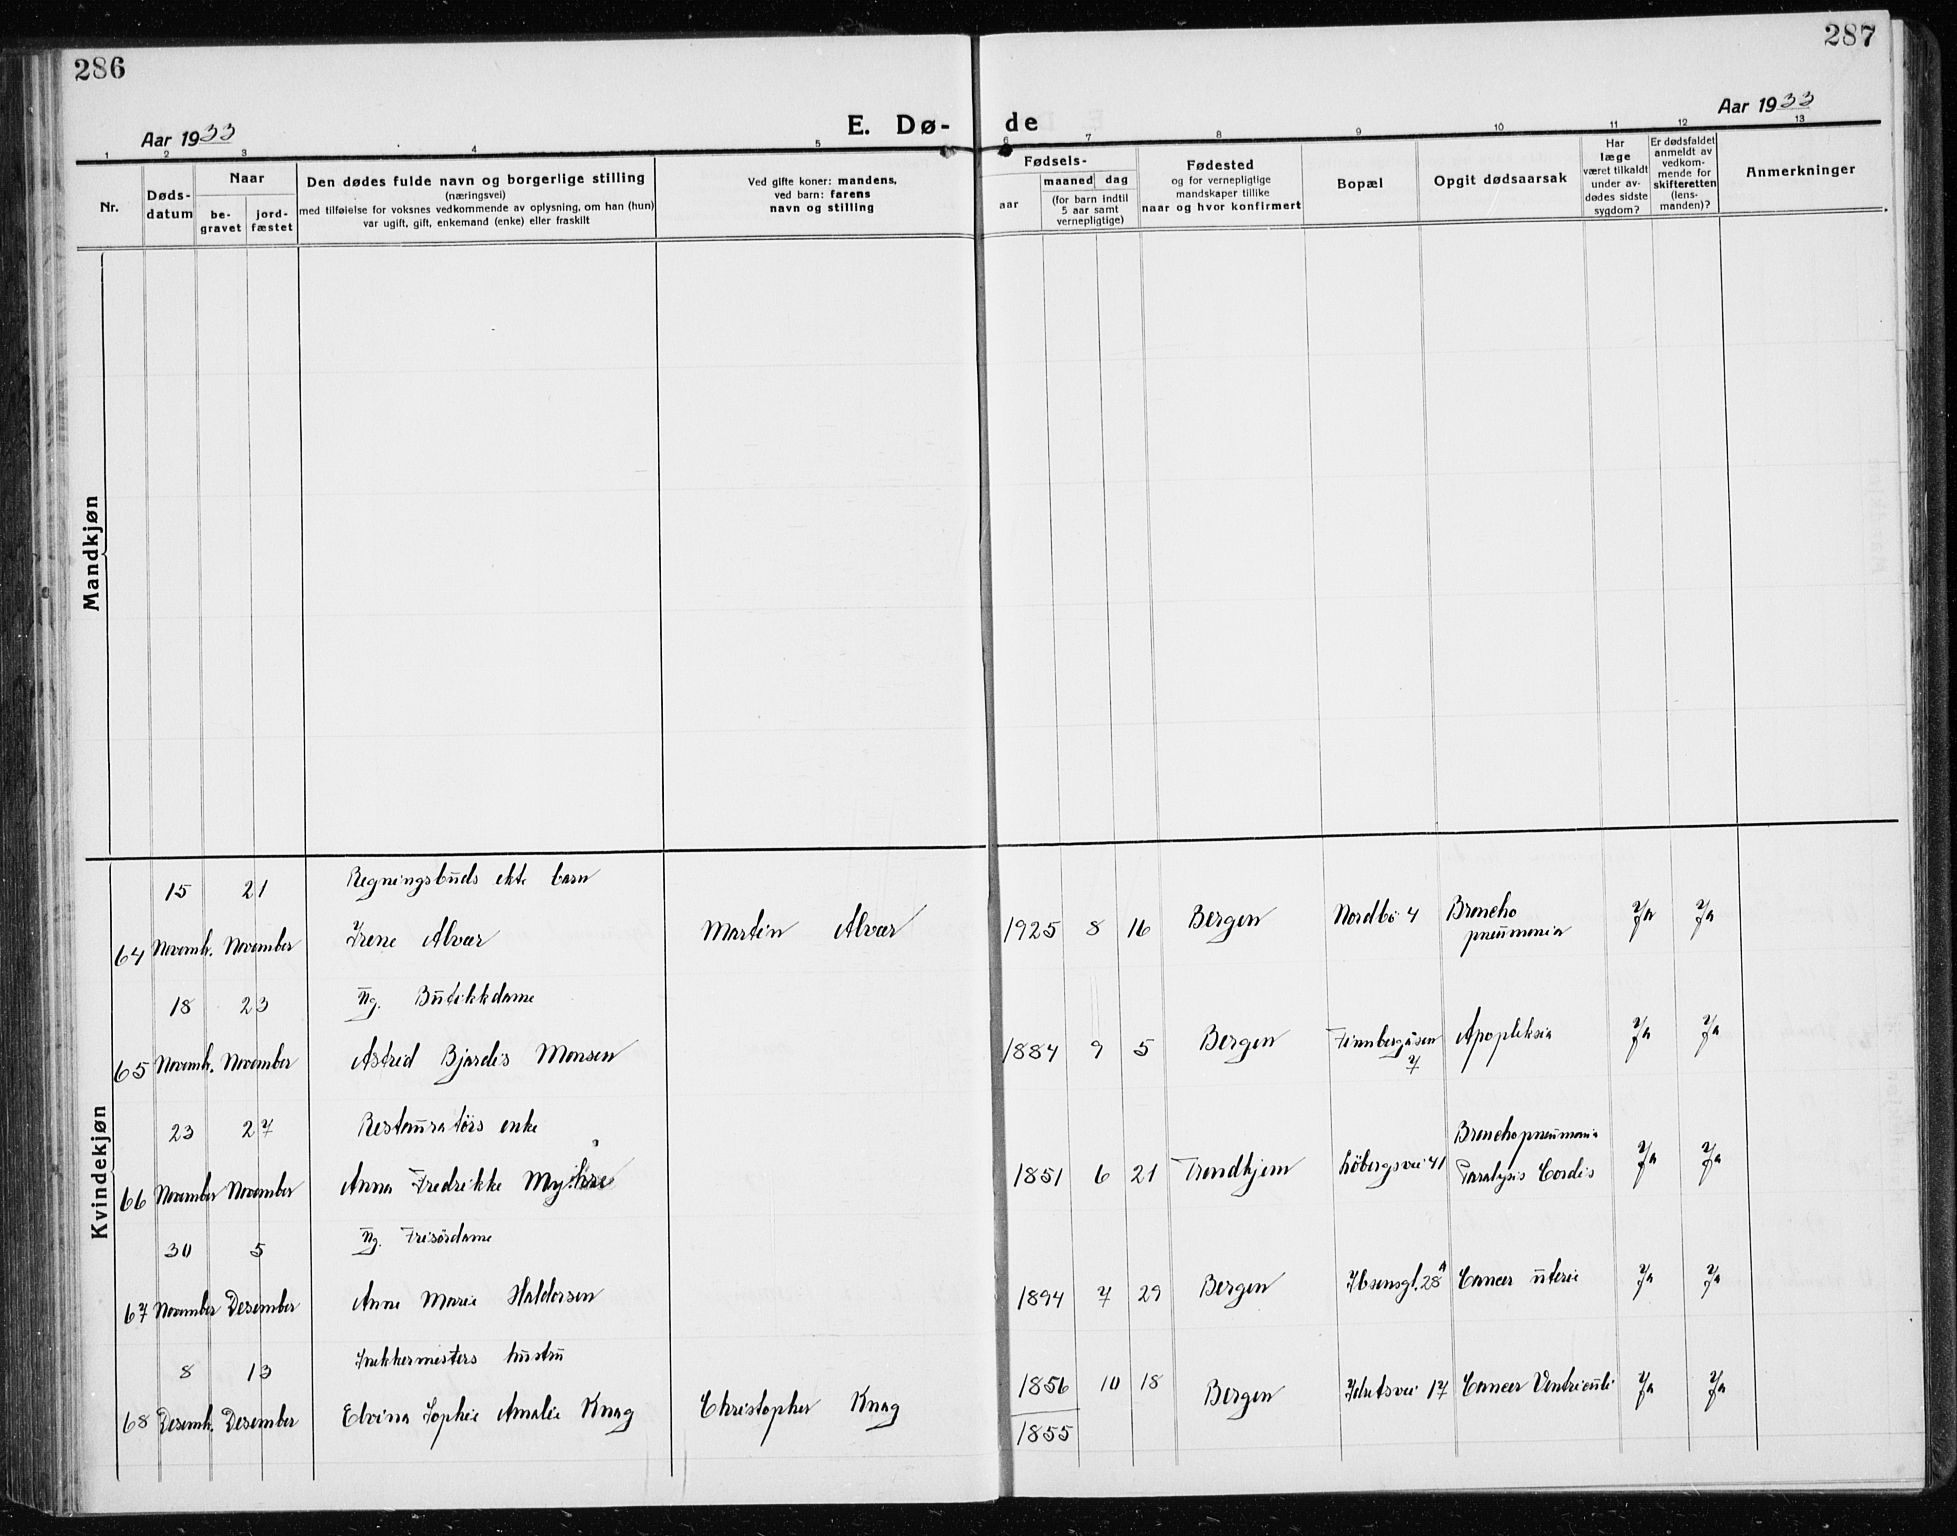 286
287
Aar 1933
E. Dø-
de
Aar 1933
1 2 3 4 5 6 7 8 9 10 11 12 13
Nr.
Døds-
datum
Naar
be-
gravet
jord-
fæstet
Den dødes fulde navn og borgerlige stilling
(næringsvei)
med tilføielse for voksnes vedkommende av oplysning, om han (hun)
var ugift, gift, enkemand (enke) eller fraskilt
Ved gifte koner: mandens,
ved barn: farens
navn og stilling
Fødsels-
aar
maaned dag
(for barn indtil
5 aar samt
vernepligtige)
Fødested
og for vernepligtige
mandskaper tillike
naar og hvor konfirmert
Bopæl
Opgit dødsaarsak
Har
læge
været tilkaldt
under av-
dødes sidste
sygdom?
Er dødsfaldet
anmeldt av
vedkom-
mende for
skifteretten
(lens-
manden)?
Anmerkninger
Mandkjøn
Kvindekjøn
15 21 Regningsbuds ekte barn
64 Novemb. November Irene Alvær Martin Alvær 1925 8 16 Bergen Nordbö 4 Broncho Ja Ja
pneumonia
18 23 Ug. Butikkdame
65 Novemb. November Astrid Bjardis Monsen 1884 9 5 Bergen Finnbergåsen Apopleksia Ja Ja
7
23 27 Restauratørs enke
Bronchopneumonia
66 November November Anna Fredrikke Myhre 1851 6 21 Trondhjem Löbergsvei 41 Paralysis Cordis Ja Ja
30 5 Ug. Frisördame
67 November Desember Anne Marie Haldorsen 1894 7 29 Bergen Ibsensgt. 28A Cancer uterie Ja Ja
8 13 Snekkermesters hustru
68 Desemb. Desember Elvina Sophie Amalie Knag Christopher Knag 1856 10 18 Bergen Idretsvei 17 Cancer Ventriculi Ja Ja
1855